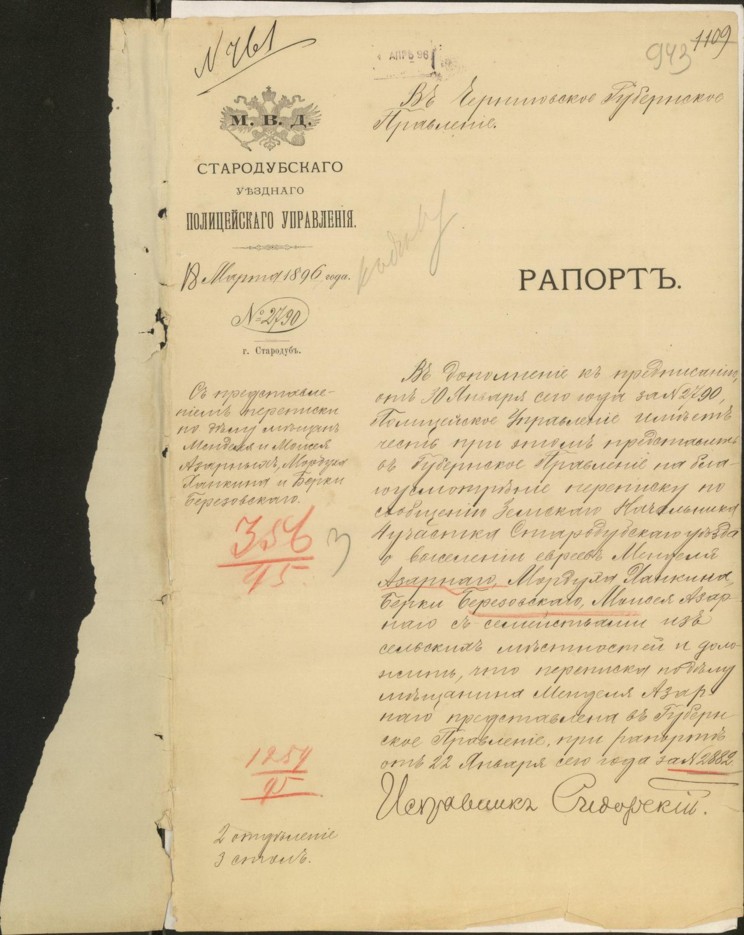 N 461
АПРѢ 96
943
1109
М. В. Д.
СТАРОДУБСКАГО
УѢЗДНАГО
ПОЛИЦЕЙСКАГО УПРАВЛЕНІЯ.
Марта 1896 года.
№ 2790
г. Стародубъ.
Съ представле-
ніемъ переписки
по дѣлу мѣщанъ
Менделя и Моисея
Азарныхъ, Мордуха
Ханкина и Берки
Березовскаго.
356
95
3
1259
95
2 отдѣленіе
3 столъ.
Въ Черниговское Губернское
Правленіе.
РАПОРТЪ.
Въ дополненіе къ предписанію,
отъ 30 Января сего года за N 2790,
Полицейское Управленіе имѣетъ
честь при этомъ представить
въ Губернское Правленіе на бла-
гоусмотрѣніе переписку по
сообщенію Земскаго Начальника
4 участка Стародубскаго уѣзда
о выселеніи евреевъ Менделя
Азарнаго, Мордуха Ханкина,
Берки Березовскаго, Моисея Азар-
наго съ семействами изъ
сельскихъ мѣстностей и доло-
жить, что переписка по дѣлу
мѣщанина Менделя Азар
наго представлена въ Губерн
ское Правленіе, при рапортѣ
отъ 22 Января сего года за N 2882
Исправникъ